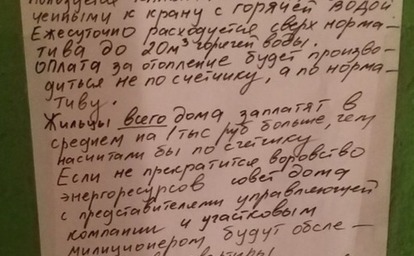 ченными к крану с горячей водой
Ежесуточно расходуется сверх норма-
тива до 20м³ горячей воды.
Оплата за отопление будет произво-
диться не по счетчику, а по норма-
тиву.
Жильцы всего дома заплатят в
среднем на 1 тыс руб больше, чем
насчитали бы по счетчику
Если не прекратится воровство
энергоресурсов совет дома
с представителями управляющей
компании и участковым
милиционером будут обсле-